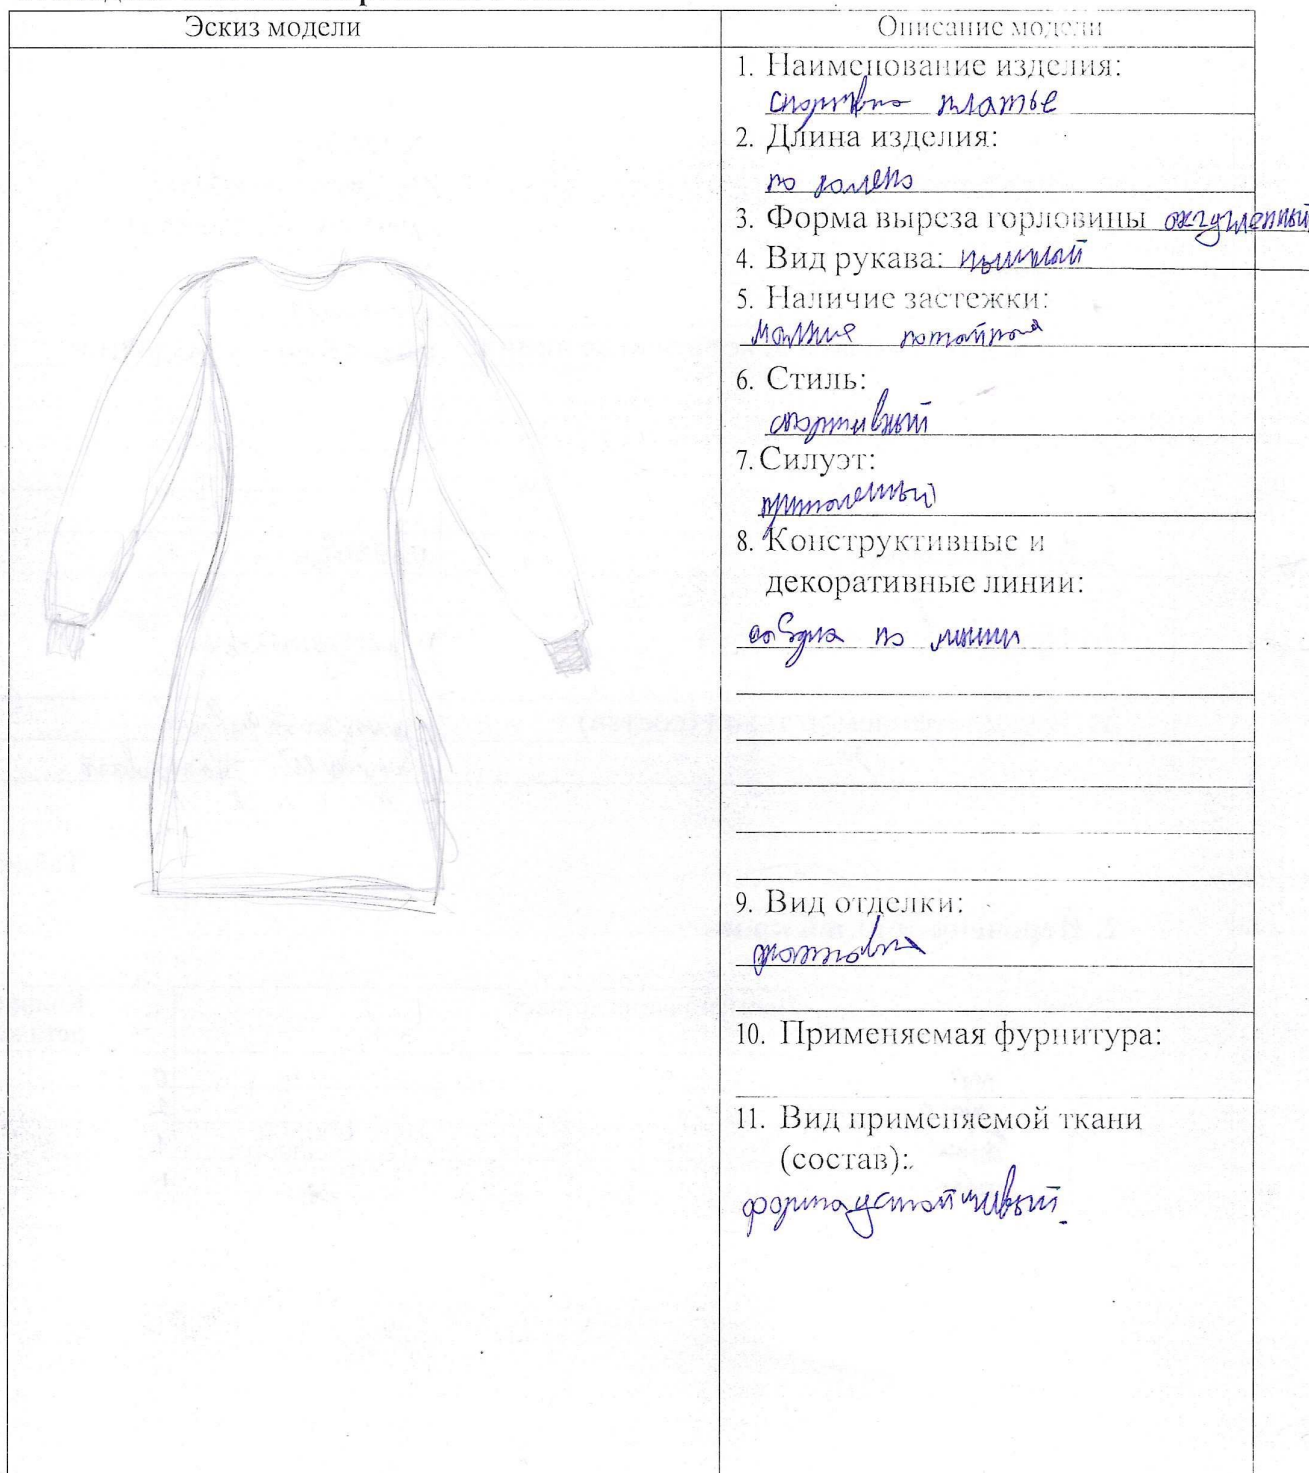 Эскиз модели
Описание модели
1. Наименование изделия:
платье
2. Длина изделия:
по колено
3. Форма выреза горловины округленный
4. Вид рукава: пышный
5. Наличие застежки:
молние потайное
6. Стиль:
спортивный
7. Силуэт:
приталенный
8. Конструктивные и
декоративные линии:
по линии
9. Вид отделки:
10. Применяемая фурнитура:
11. Вид применяемой ткани
(состав):
формаустойчивый